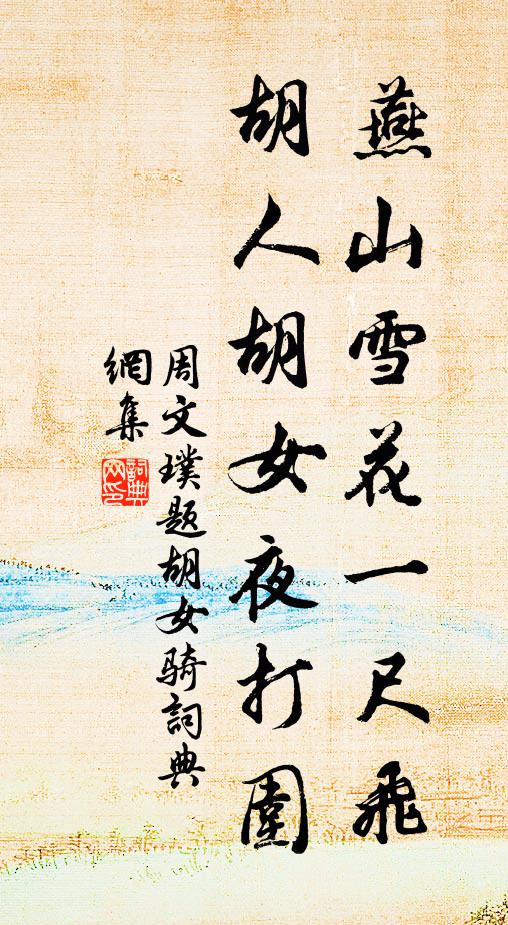 燕山雪花一尺飛
胡人胡女夜打圍
周文璞题胡女骑詞典
網集
詞典
网印